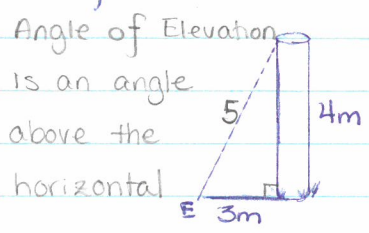 Angle of Elevation
is an angle
5
4m
above the
horizontal
E
3m